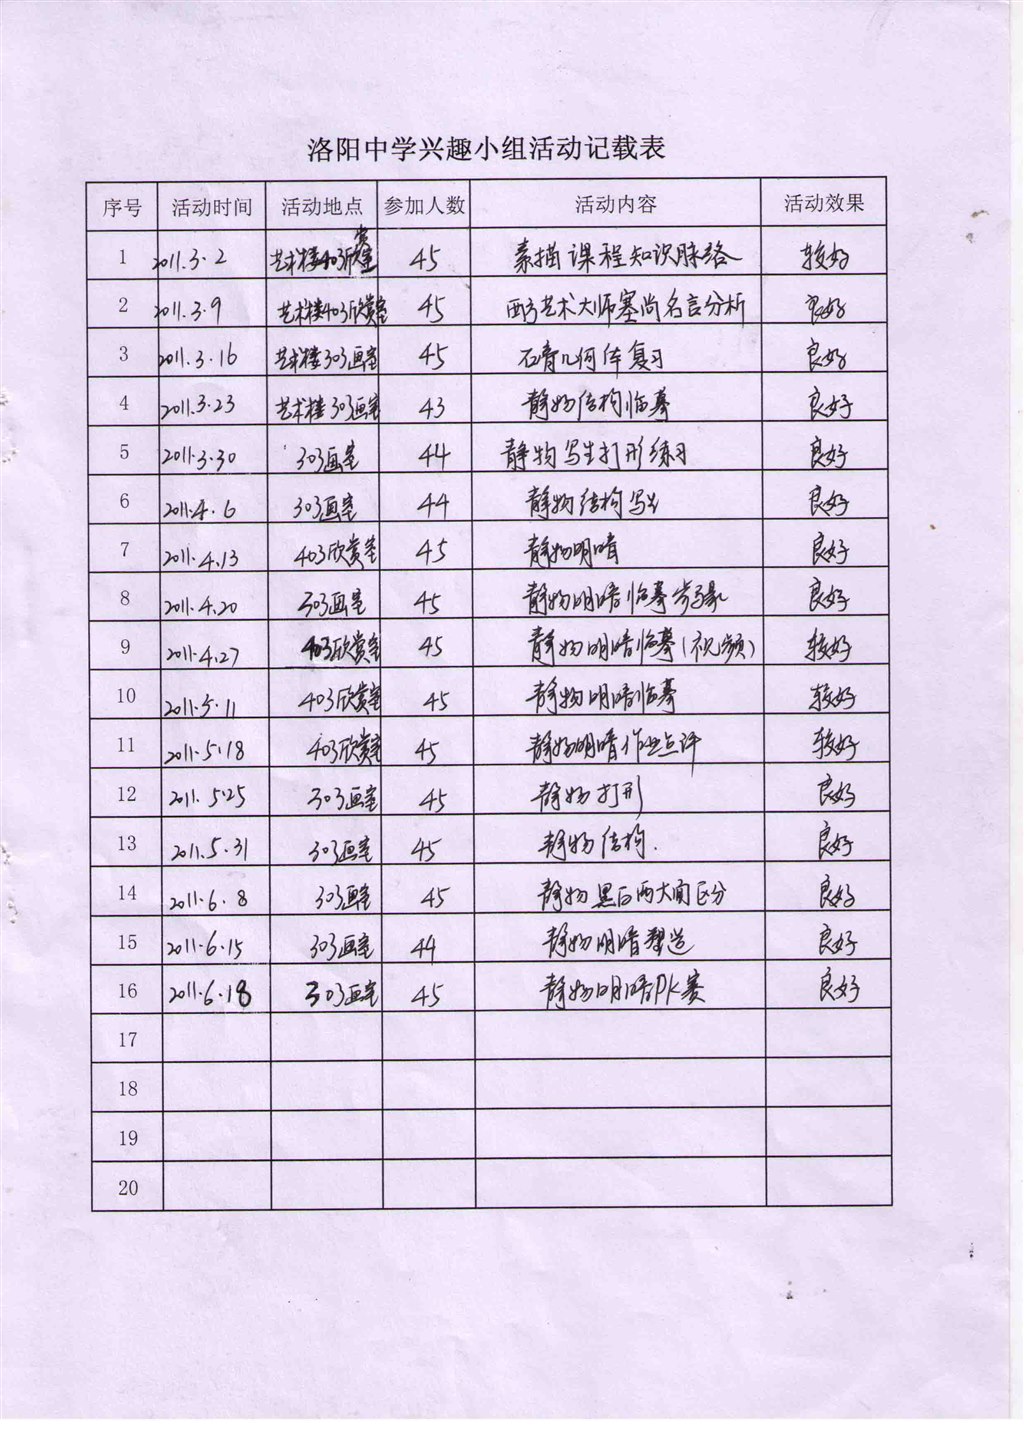 洛阳中学兴趣小组活动记载表
序号 活动时间 活动地点 参加人数 活动内容 活动效果
1 2011.3.2 艺术楼403欣赏室 45 素描课程知识脉络 较好
2 2011.3.9 艺术楼403欣赏室 45 西方艺术大师塞尚名言分析 良好
3 2011.3.16 艺术楼303画室 45 石膏几何体复习 良好
4 2011.3.23 艺术楼303画室 43 静物结构临摹 良好
5 2011.3.30 303画室 44 静物写生打形练习 良好
6 2011.4.6 303画室 44 静物结构写生 良好
7 2011.4.13 403欣赏室 45 静物明暗 良好
8 2011.4.20 303画室 45 静物明暗临摹步骤 良好
9 2011.4.27 403欣赏室 45 静物明暗临摹(视频) 较好
10 2011.5.11 403欣赏室 45 静物明暗临摹 较好
11 2011.5.18 403欣赏室 45 静物明暗作业点评 较好
12 2011.5.25 303画室 45 静物打形 良好
13 2011.5.31 303画室 45 静物结构. 良好
14 2011.6.8 303画室 45 静物黑白两大面区分 良好
15 2011.6.15 303画室 44 静物明暗塑造 良好
16 2011.6.18 303画室 45 静物明暗PK赛 良好
17
18
19
20